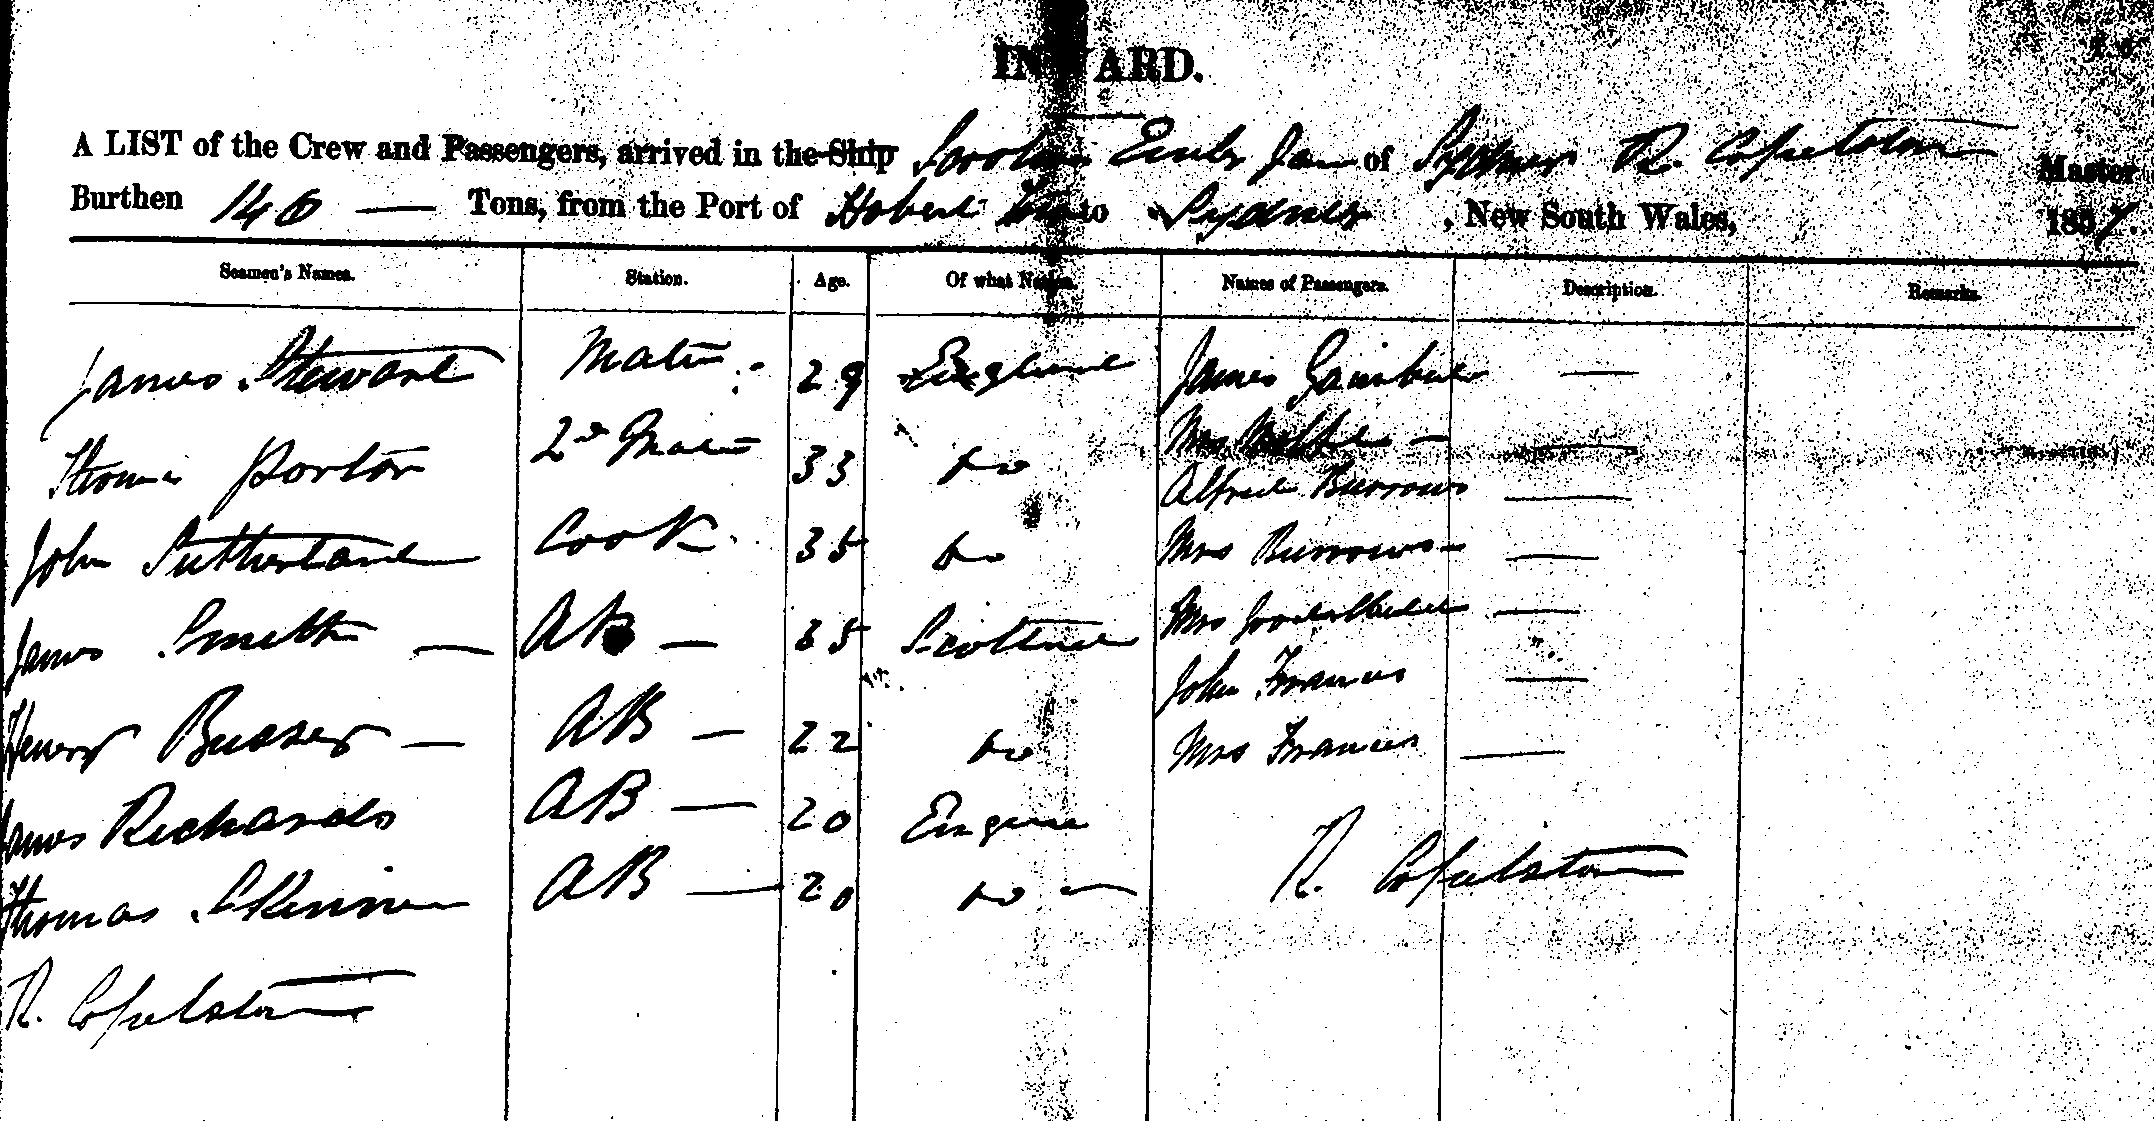 INWARD.
A LIST of the Crew and Passengers, arrived in the Ship Emily Jane of Sydney R. Copelston Master
Burthen 146 — Tons, from the Port of Hobart Town to Sydney, New South Wales, 1857.
Seamen's Names. Station. Age. Of what Nation. Names of Passengers. Description. Remarks.
James Stewart Mate 29 England James —
Thomas Porter 2d Mate 33 Do Mrs —
Alfred Burrows —
John Sutherland Cook 35 Do Mrs Burrows —
James Smith — AB — 35 Scotland Mrs —
John Francis —
Henry — AB — 22 Do Mrs Francis —
James Richards AB — 20 England
Thomas Skinner AB — 20 Do — R. Copelston
R. Copelston